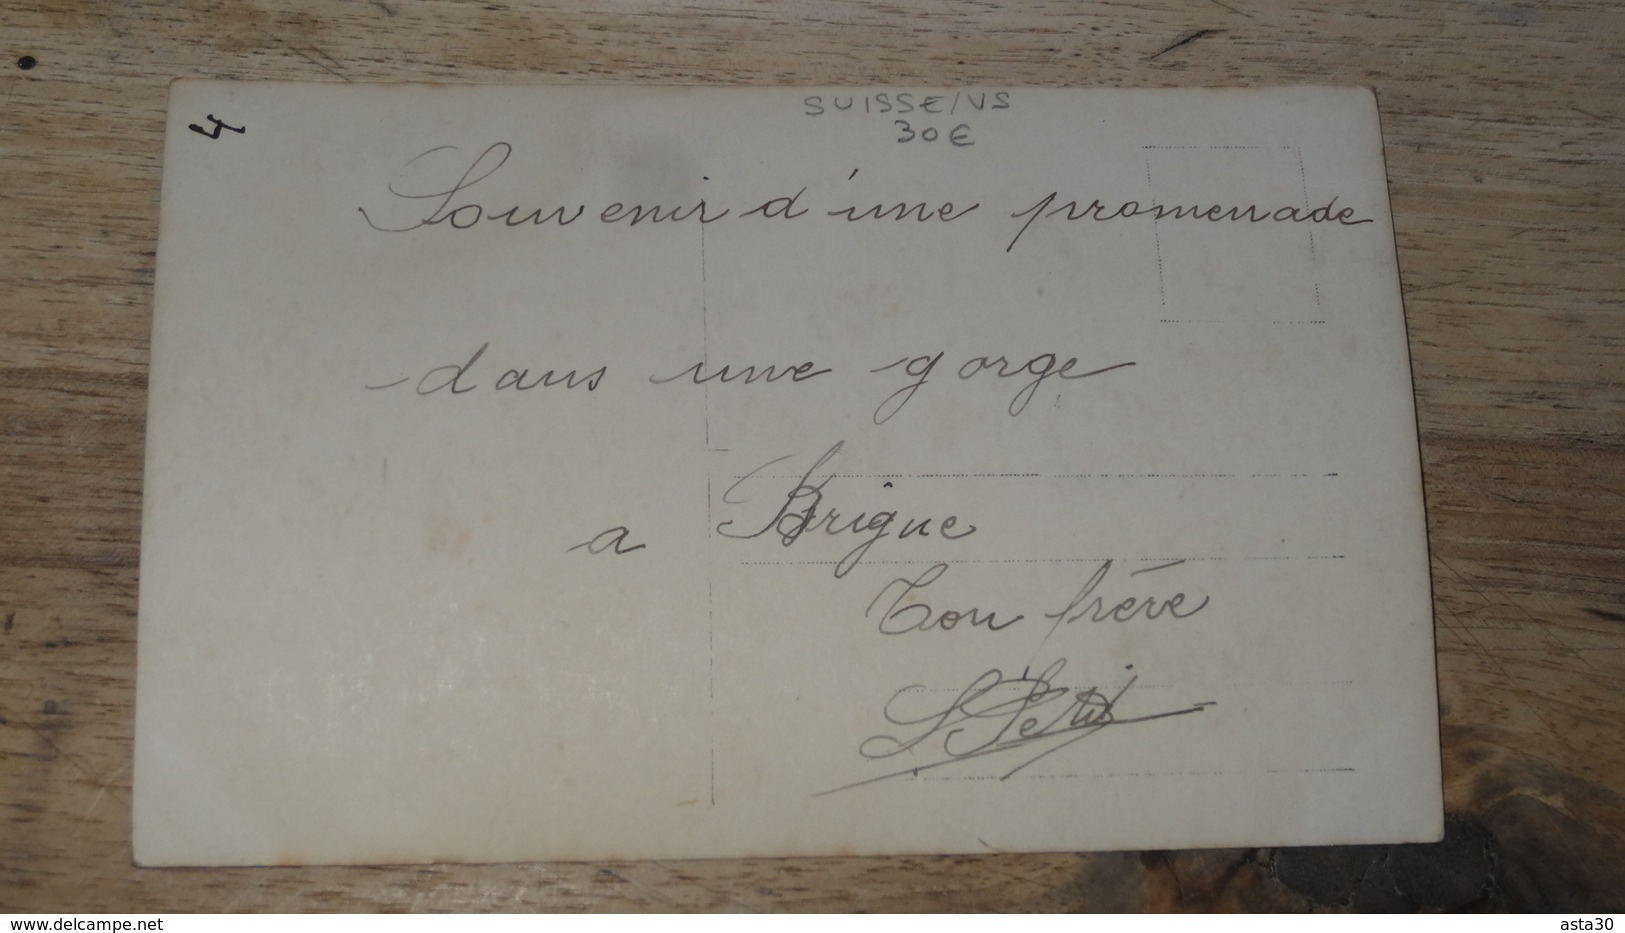 SUISSE/VS
30€
4
Souvenir d'une promenade
dans une gorge
a Brigue
Ton frère
www.delcampe.net
asta30